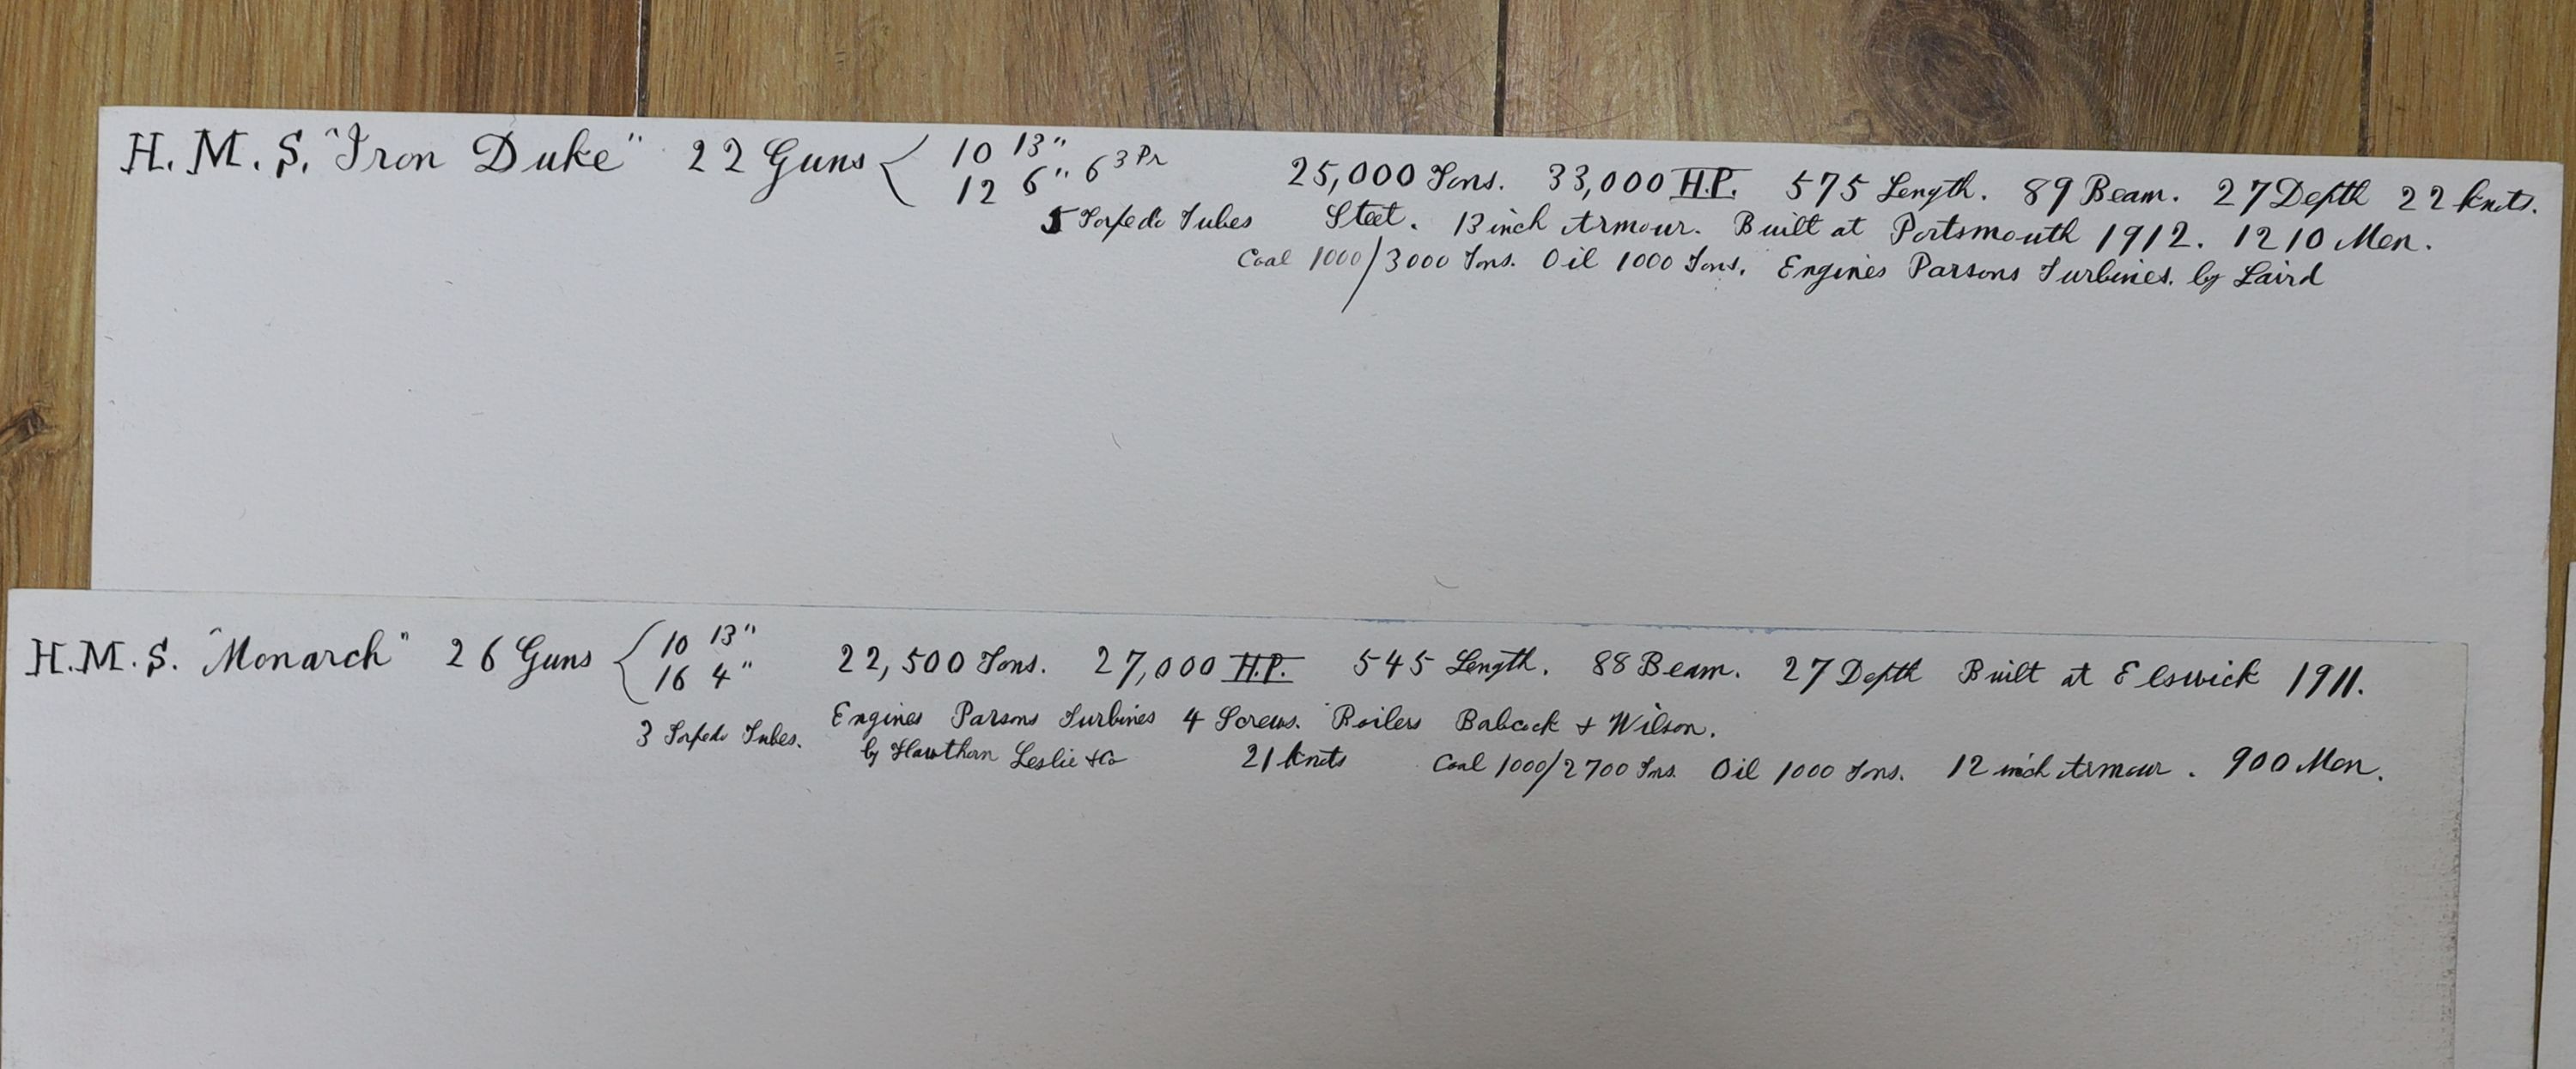 H.M.S. "Iron Duke" 22 Guns { 10 13"
12 6" 6 3 Pr
5 Torpedo Tubes
25,000 Tons. 33,000 H.P. 575 Length. 89 Beam. 27 Depth 22 knots.
Steel. 13 inch Armour. Built at Portsmouth 1912. 1210 Men.
Coal 1000/3000 Tons. Oil 1000 Tons. Engines Parsons Turbines. by Laird
H.M.S. "Monarch" 26 Guns { 10 13"
16 4"
3 Torpedo Tubes.
22,500 Tons. 27,000 H.P. 545 Length. 88 Beam. 27 Depth Built at Elswick 1911.
Engines Parsons Turbines 4 Screws. Boilers Babcock + Wilson.
by Hawthorn Leslie & Co 21 knots Coal 1000/2700 Tons. Oil 1000 Tons. 12 inch Armour. 900 Men.